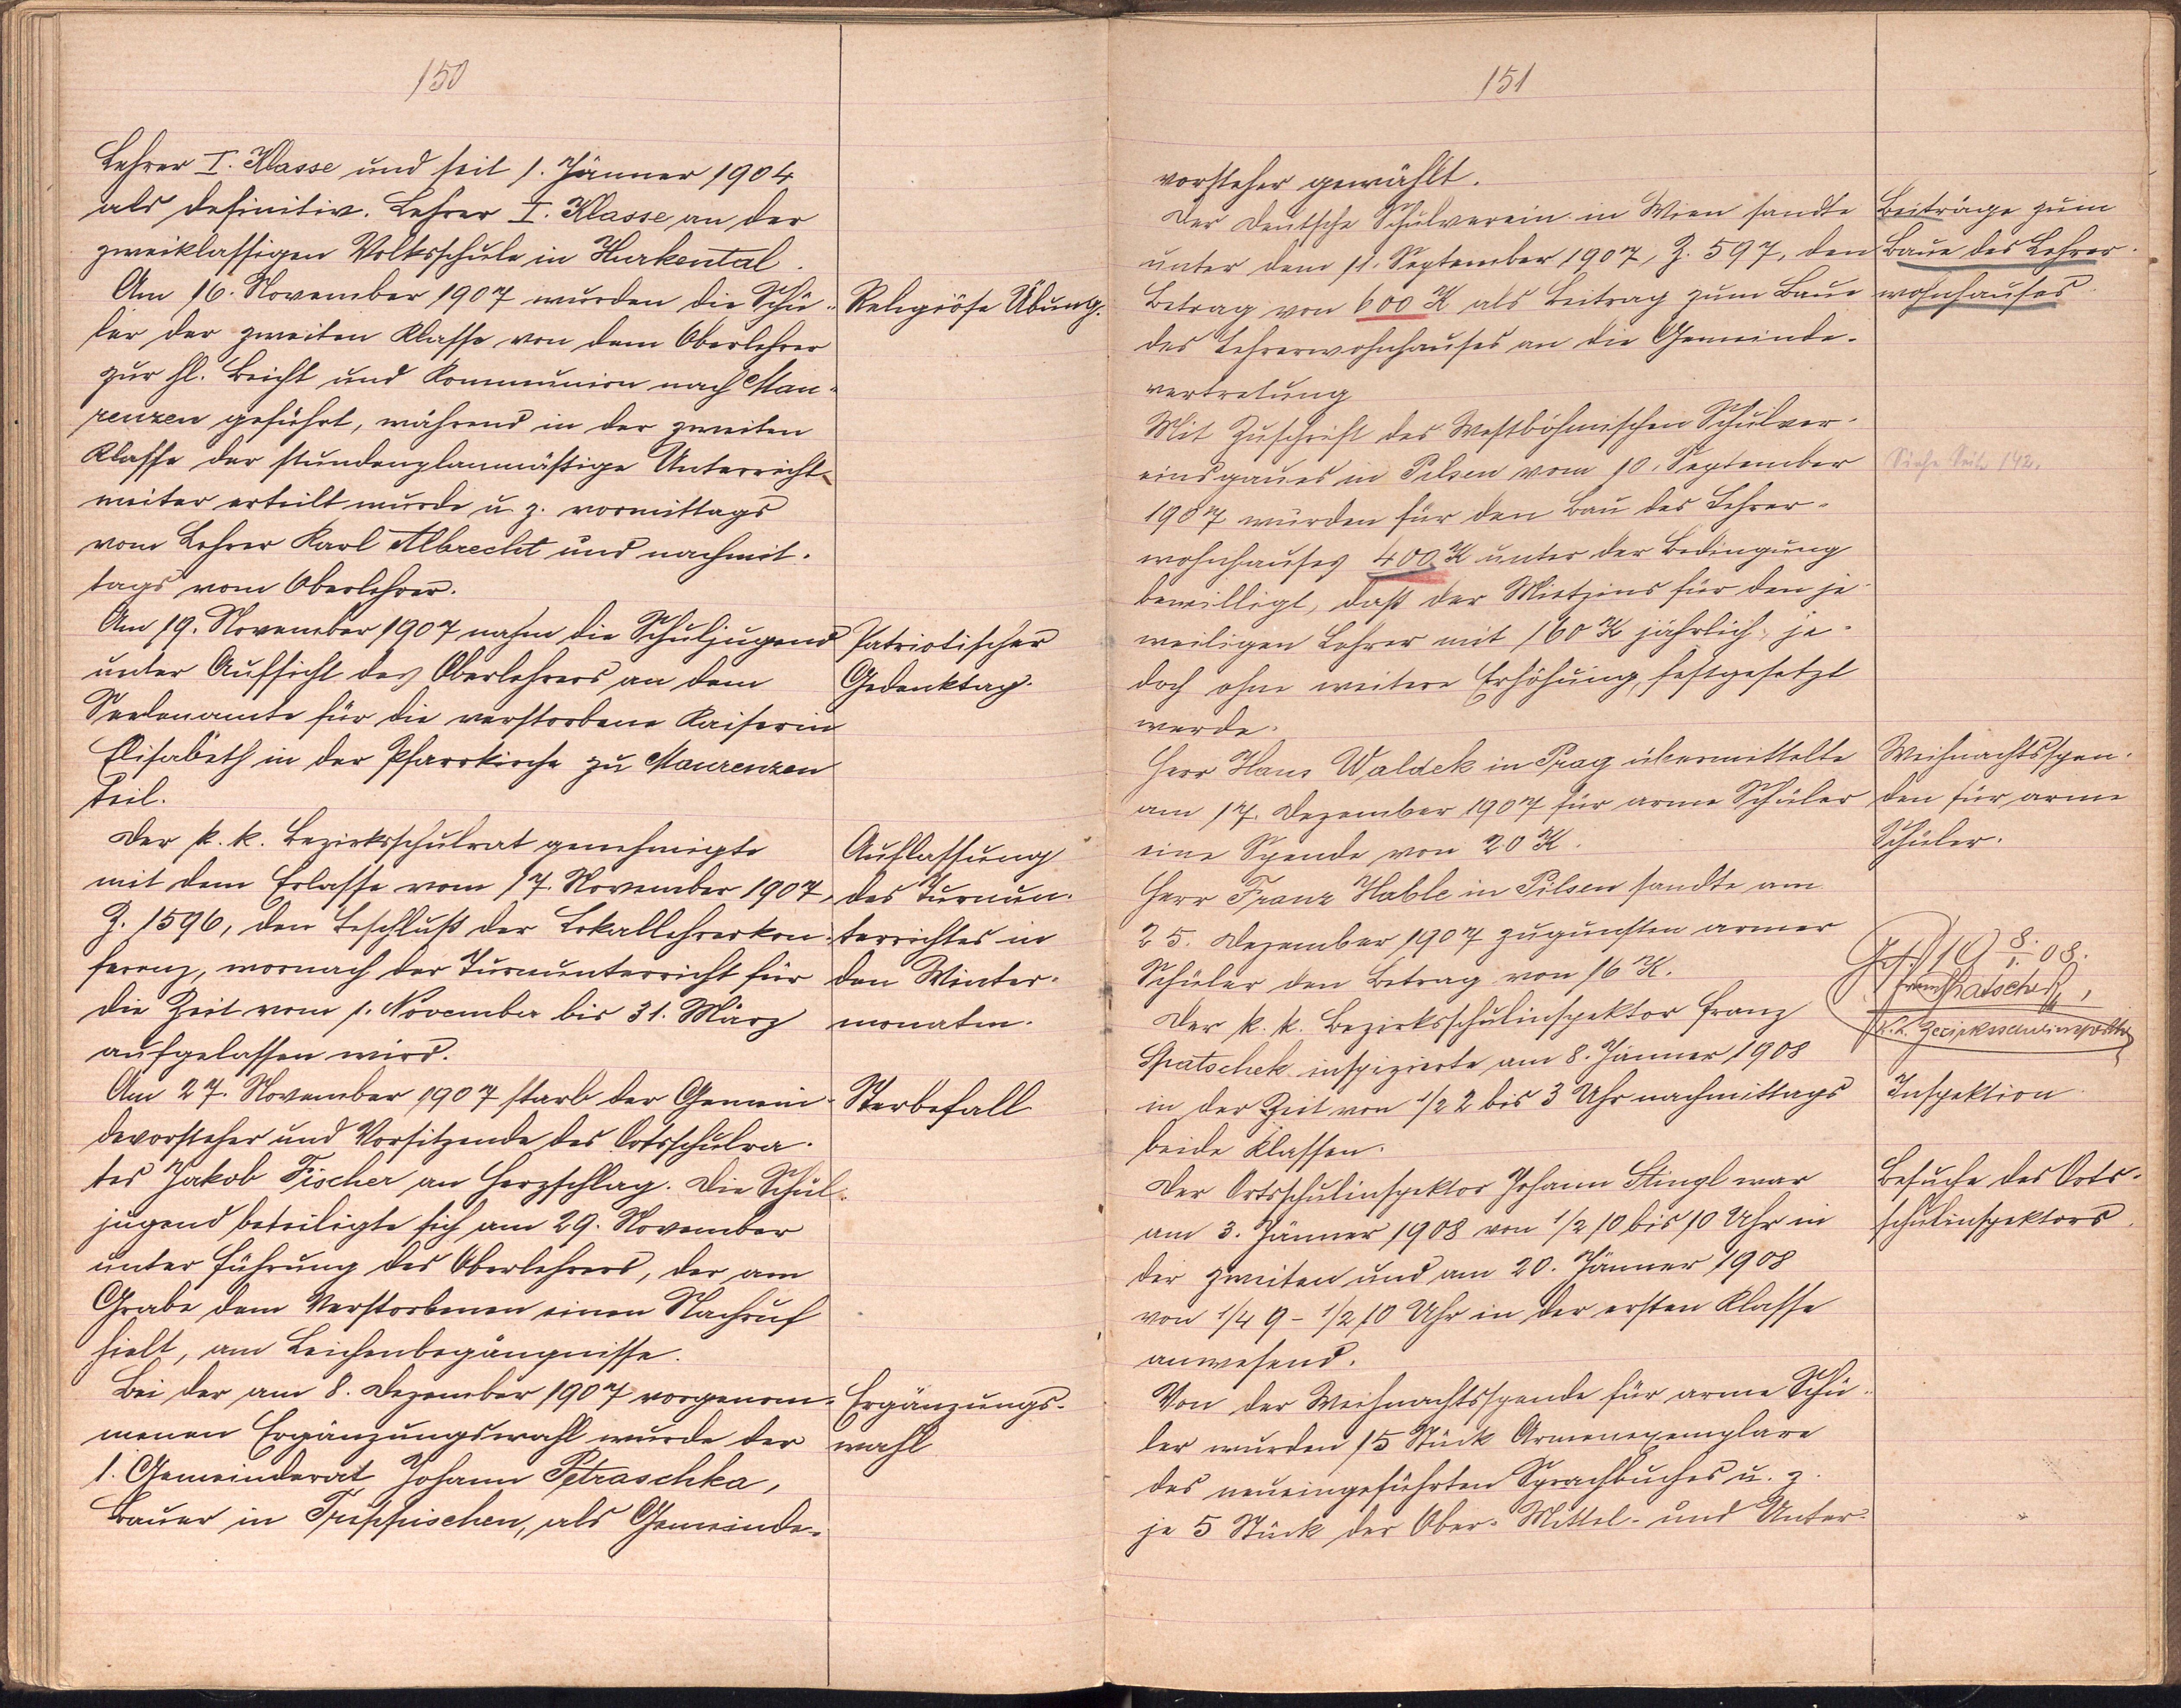 150
Lehrer I. Klasse und seit 1. Jänner 1904
als definitiv. Lehrer I. Klasse an der
zweiklassigen Volksschule in Hurkental.
Am 16. November 1907 wurden die Schü-
ler der zweiten Klasse von dem Oberlehrer
zur hl. Beicht und Kommunion nach Mau-
renzen geführt, während in der zweiten
Klasse der stundenplanmäßige Unterricht
weiter erteilt wurde u. z. vormittags
vom Lehrer Karl Albrecht und nachmit-
tags vom Oberlehrer.
Am 19. November 1907 nahm die Schuljugend
unter Aufsicht des Oberlehrers an dem
Seelenamte für die verstorbene Kaiserin
Elisabeth in der Pfarrkirche zu Maurenzen
teil.
Der k. k. Bezirksschulrat genehmigte
mit dem Erlasse vom 17. November 1907,
Z. 1596, den Beschluß der Lokallehrerkon-
ferenz, wornach der Turnunterricht für
die Zeit vom 1. November bis 31. März
aufgelassen wird.
Am 27. November 1907 starb der Gemein-
devorsteher und Vorsitzende des Ortsschulra-
tes Jakob Fischer an Herzschlag. Die Schul-
jugend beteiligte sich am 29. November
unter Führung des Oberlehrers, der am
Grabe dem Verstorbenen einen Nachruf
hielt, am Leichenbegängnisse.
Bei der am 8. Dezember 1907 vorgenom-
menen Ergänzungswahl wurde der
1. Gemeinderat Johann Petraschka,
Bauer in Treppischen, als Gemeinde-
Religiöse Übung.
Patriotischer
Gedenktag.
Auflassung
des Turnun-
terrichtes in
den Winter-
monaten.
Sterbefall
Ergänzungs-
wahl
151
vorsteher gewählt.
Der Deutsche Schulverein in Wien sandte
unter dem 11. September 1907, Z. 597, den
Betrag von 600 K als Beitrag zum Baue
des Lehrerwohnhauses an die Gemeinde-
vertretung
Mit Zuschrift des Westböhmischen Schulver-
einsgaues in Pilsen vom 10. September
1907 wurden für den Bau des Lehrer-
wohnhauses 400 K unter der Bedingung
bewilligt, daß der Mietzins für den je-
weiligen Lehrer mit 160 K jährlich, je-
doch ohne weitere Erhöhung, festgesetzt
werde.
Herr Hans Waldek in Prag übermittelte
am 17. Dezember 1907 für arme Schüler
eine Spende von 20 K.
Herr Franz Hable in Pilsen sandte am
25. Dezember 1907 zugunsten armer
Schüler den Betrag von 16 K.
Der k. k. Bezirksschulinspektor Franz
Spatschek inspizierte am 8. Jänner 1908
in der Zeit von 1/2 2 bis 3 Uhr nachmittags
beide Klassen.
Der Ortsschulinspektor Johann Stingl war
am 3. Jänner 1908 von 1/2 10 bis 10 Uhr in
der zweiten und am 20. Jänner 1908
von 1/4 9 - 1/2 10 Uhr in der ersten Klasse
anwesend.
Von der Weihnachtsspende für arme Schü-
ler wurden 15 Stück Armenexemplare
des neueingeführten Sprachbuches u. z.
je 5 Stück der Ober- Mittel- und Unter-
Beiträge zum
Baue des Lehrer-
wohnhauses
Siehe Seite 142.
Weihnachtsspen-
den für arme
Schüler.
19 8./1. 08.
Franz Spatschek,
k. k. Bezirksschulinspektor
Inspektion
Besuche des Orts-
schulinspektors.